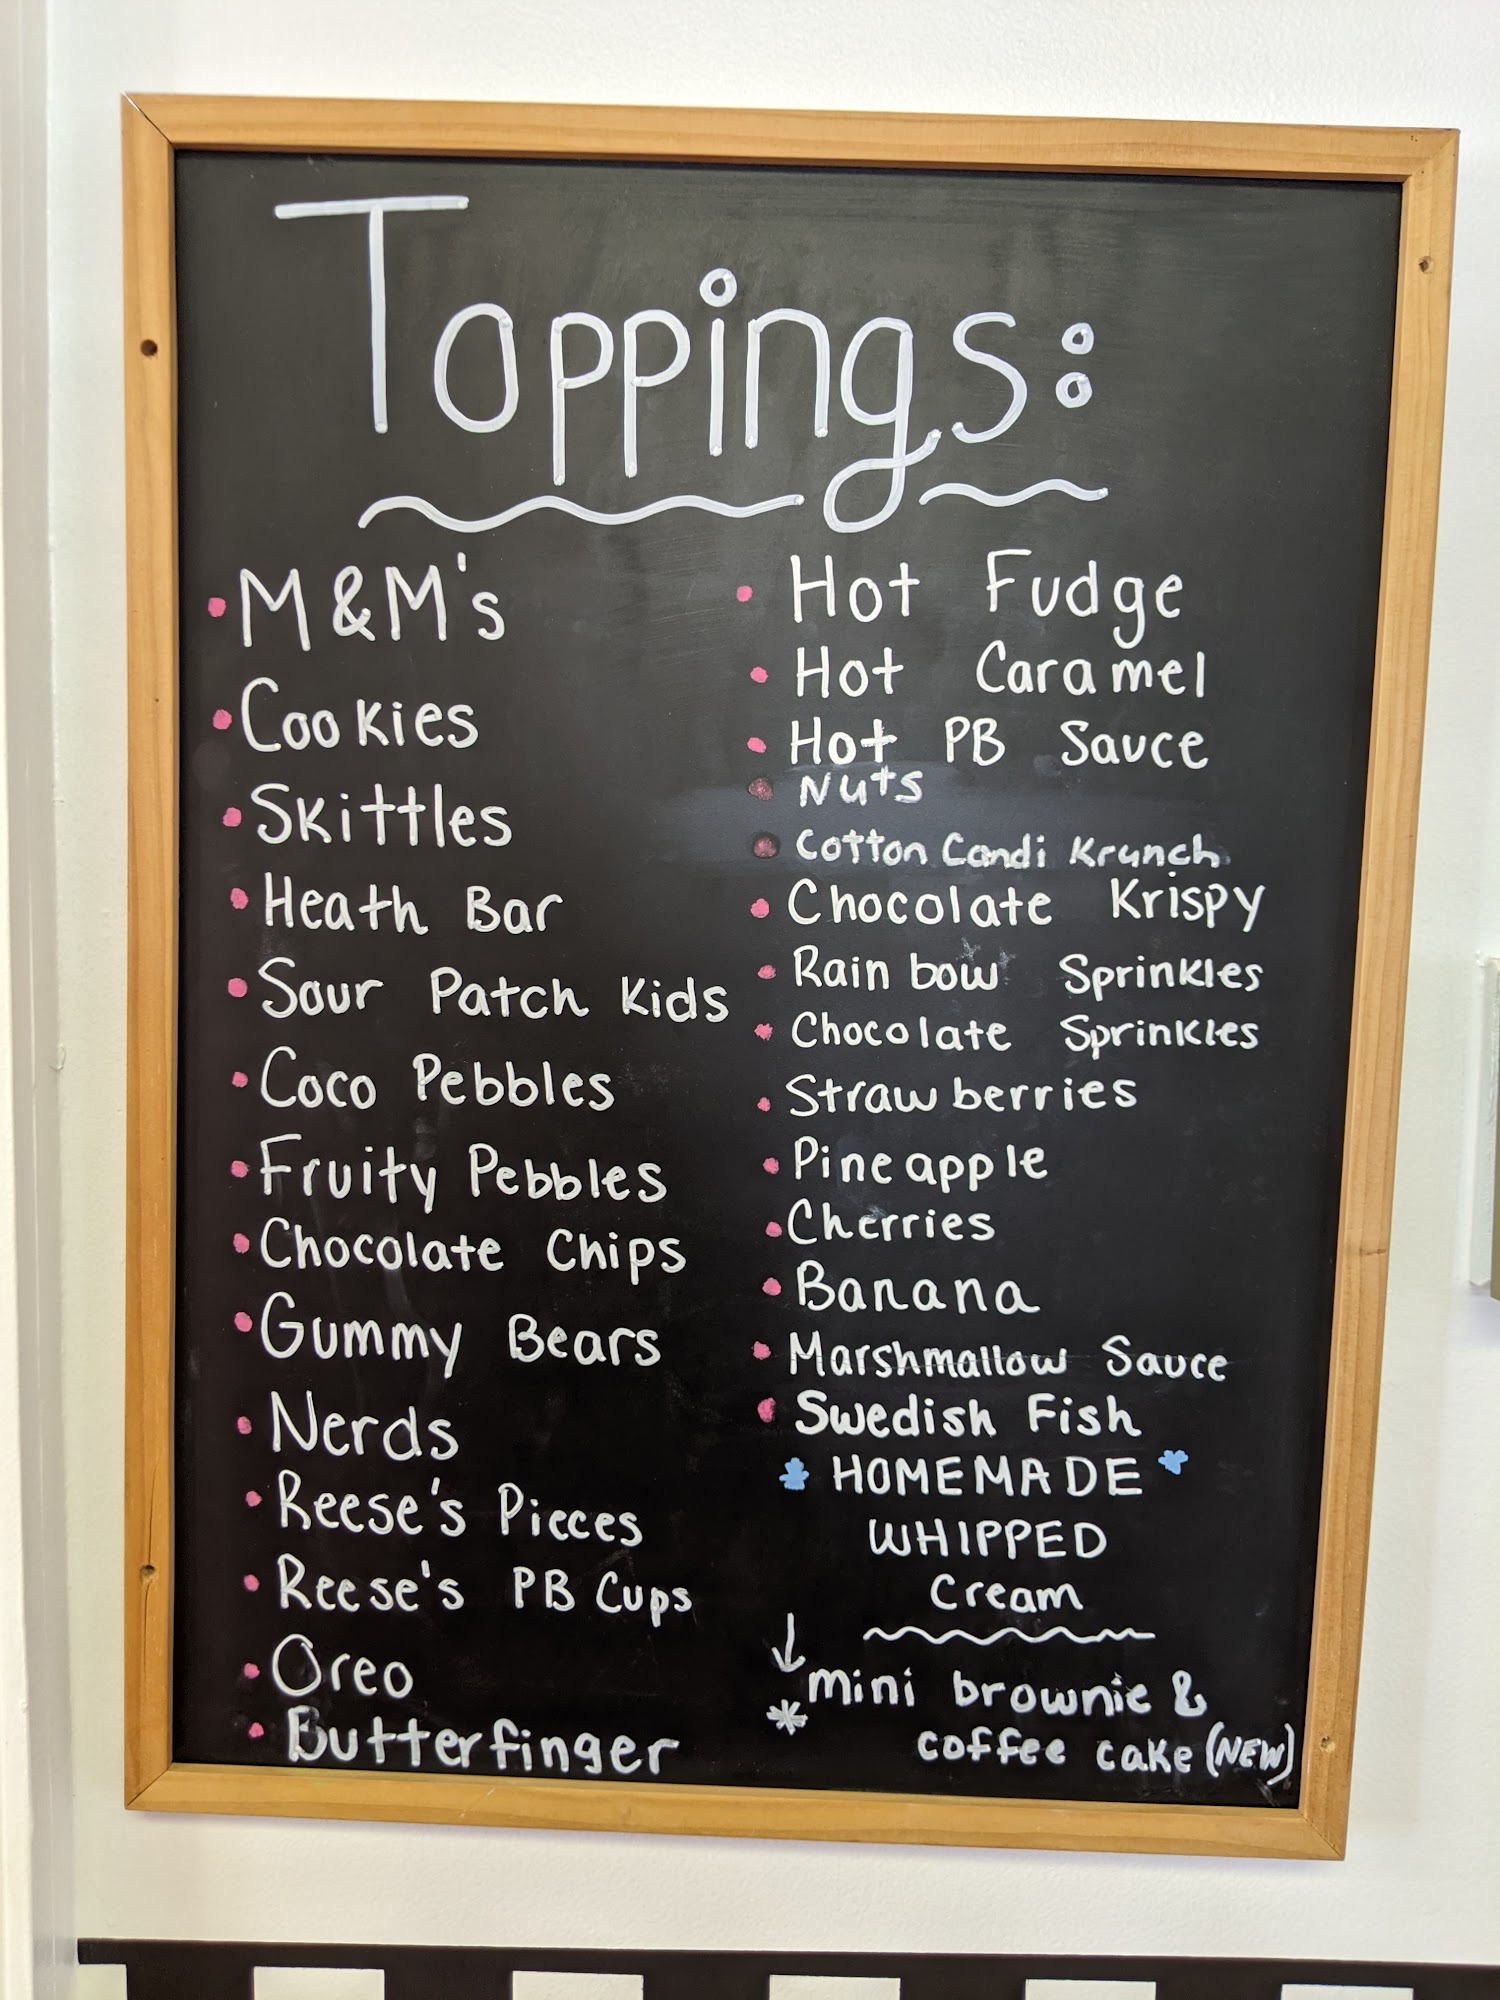 Toppings:
• M&M's
• Cookies
• Skittles
• Heath Bar
• Sour Patch Kids
• Coco Pebbles
• Fruity Pebbles
• Chocolate Chips
• Gummy Bears
• Nerds
• Reese's Pieces
• Reese's PB Cups
• Oreo
• Butterfinger
• Hot Fudge
• Hot Caramel
• Hot PB Sauce
• Nuts
• Cotton Candi Krunch
• Chocolate Krispy
• Rainbow Sprinkles
• Chocolate Sprinkles
• Strawberries
• Pineapple
• Cherries
• Banana
• Marshmallow Sauce
• Swedish Fish
HOMEMADE
WHIPPED
Cream
↓
* mini brownie &
coffee cake (NEW)